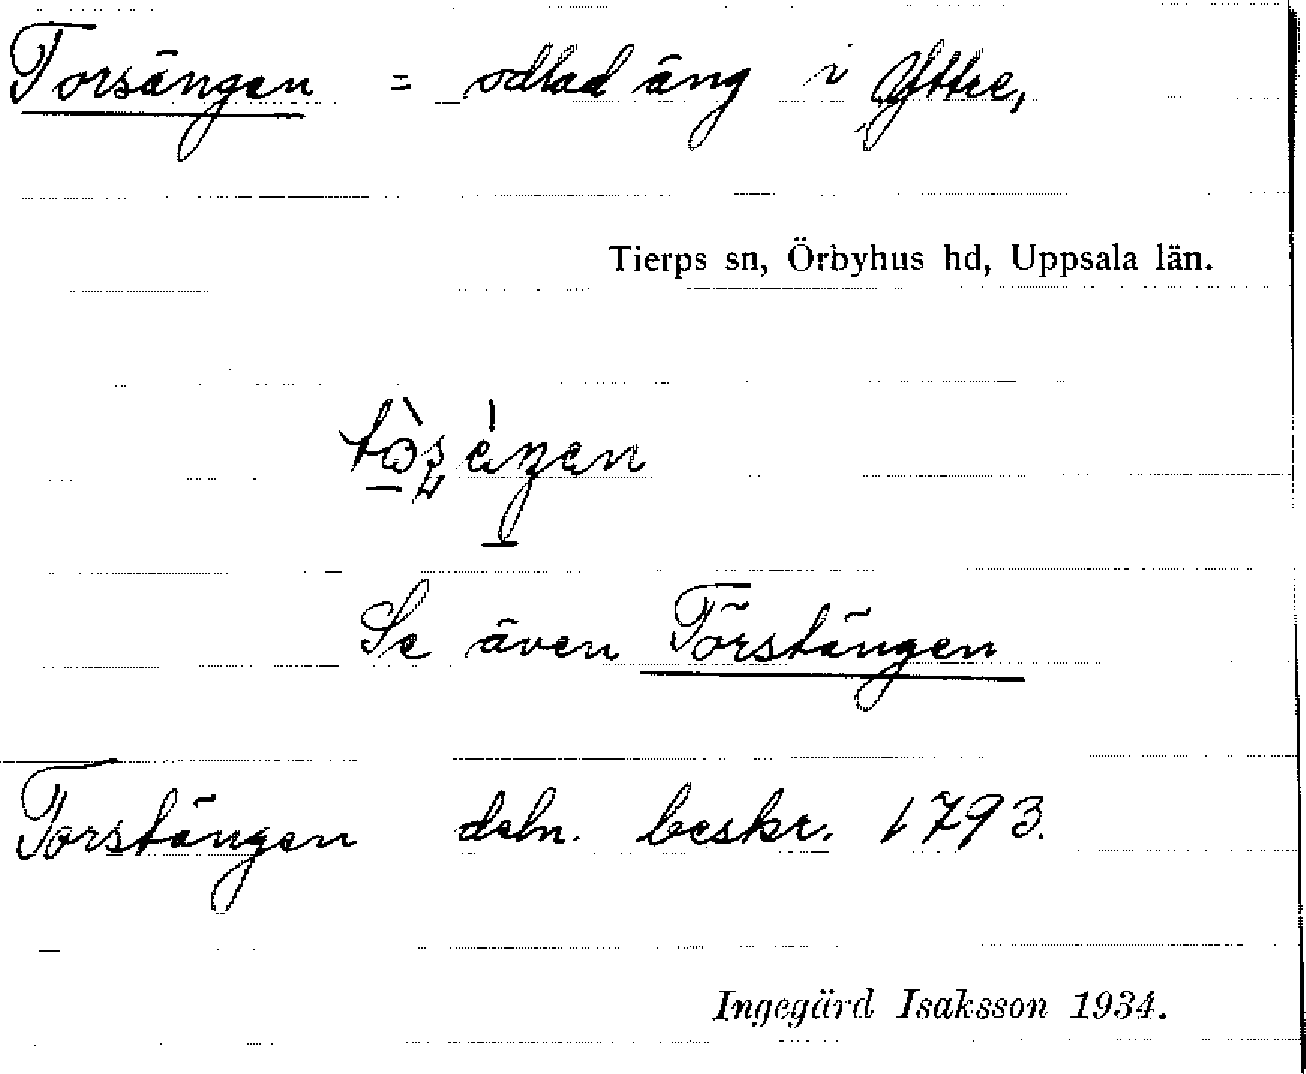 Torsängen = odlad äng i Yttre,
Tierps sn, Örbyhus hd, Uppsala län.
Se även Törstängen
Torstängen deln. beskr. 1793.
Ingegärd Isaksson 1934.